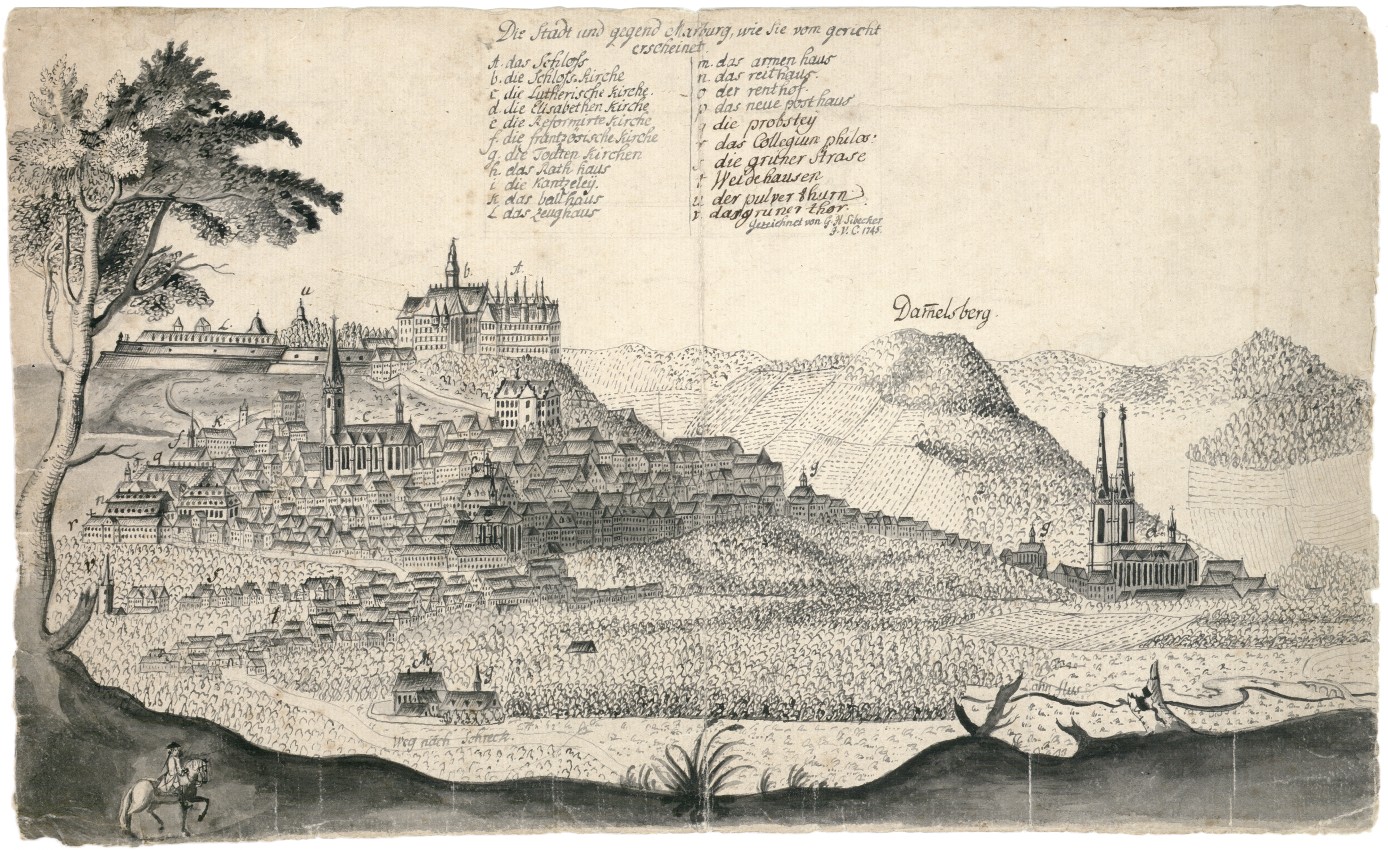 Die Stadt und gegend Marburg, wie sie vom gericht
erscheinet.
A. das Schloss
b. die Schloss-Kirche
c die Lutherische Kirche.
d die Elisabethen Kirche
e die Reformirte Kirche
f. die frantzöosische Kirche
g. die Todten Kirchen
h. das Rath haus
i die Kantzeleÿ.
k das ballhaus
L das Zeughaus
m. das armen haus
n. das reithaus.
o der renthof.
p das neue posthaus
q die probsteÿ
r das Collegium philos:
s die grüner Strase
t Weidehausen
u der pulver thurn
x das grüner thor.
Gezeichnet von G. H. Sibecker
J. V. C. 1745.
u
b. A.
L.
Dam̄elsberg.
n
K c
f
q
g
n
r e
g d
s
t
Lohn flus
Weg nach Schreck